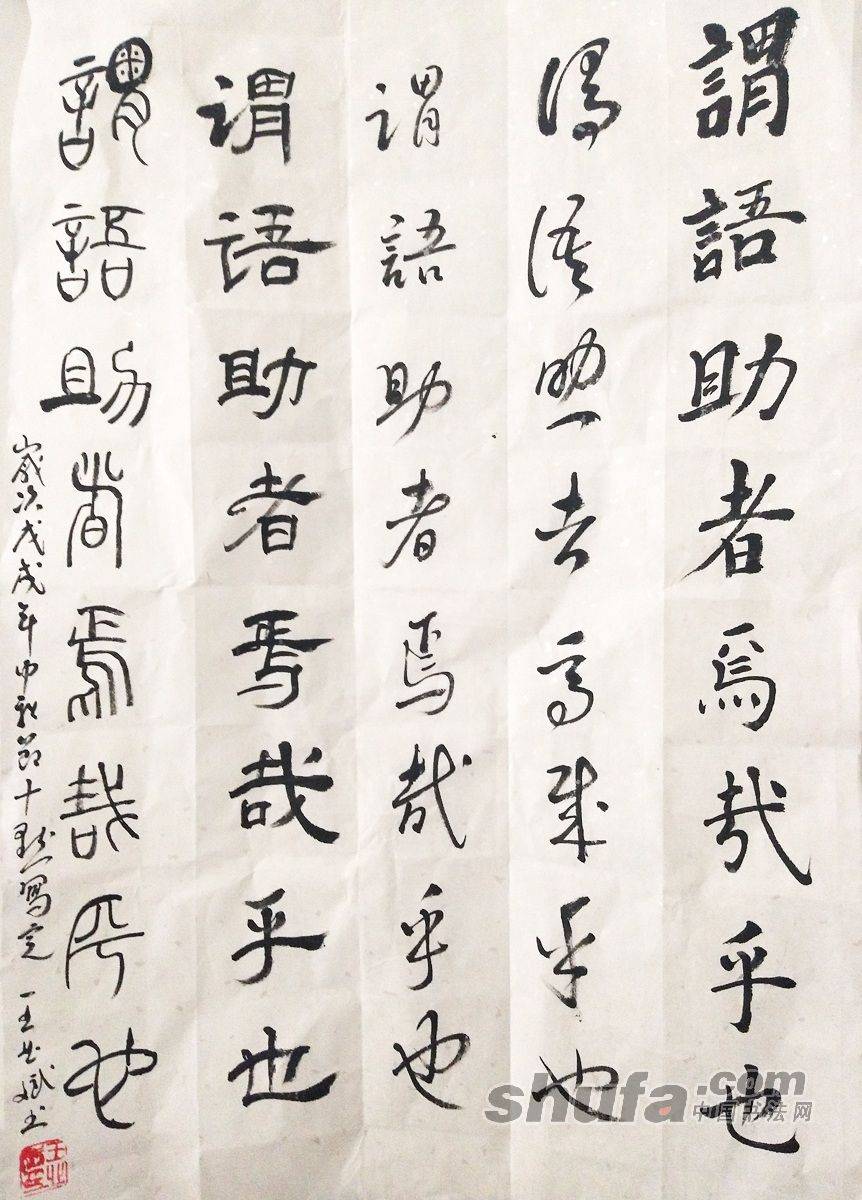 謂語助者焉哉乎也
谓语助者焉哉乎也
谓語助者焉哉乎也
谓语助者焉哉乎也
謂語助者焉哉乎也
歲次戊戌年中秋節十點寫完 王
shufa.com
中国书法网